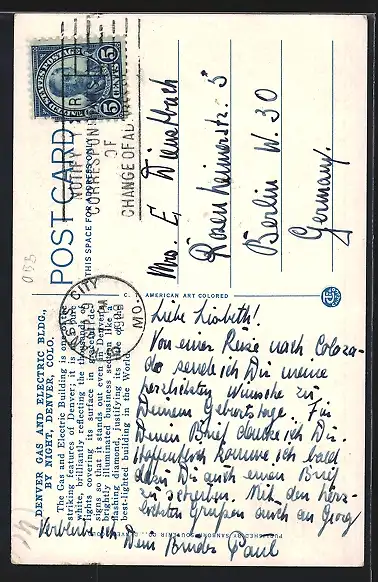 DENVER GAS AND ELECTRIC BLDG,
BY NIGHT, DENVER, COLO.
The Gas and Electric Building is one of the
striking features of Denver; it is
white, brilliantly reflecting the thousands of
lights covering its surface in graceful de-
signs so that it stands out even in Denver's
brightly illuminated business section like a
flashing diamond, justifying its title of the
best-lighted building in the World.
POST CARD
THIS SPACE FOR ADDRESS ONLY
NOTIFY YOUR
CORRESPONDENTS
OF
CHANGE OF ADDRESS
UNITED STATES POSTAGE
5 CENTS 5
CITY
MO.
C. T. AMERICAN ART COLORED
Mrs. E. Dienstbach
Rosenheimerstr. 5
Berlin W. 30
Germany.
Liebe Lisbeth!
Von einer Reise nach Colora-
do sende ich Dir meine
herzlichsten Wünsche zu
Deinem Geburtstage. Für
Deinen Brief danke ich Dir.
Hoffentlich komme ich bald
dazu Dir auch einen Brief
zu schreiben. Mit den herz-
lichsten Grüßen auch an Georg
verbleibe ich Dein Bruder Paul